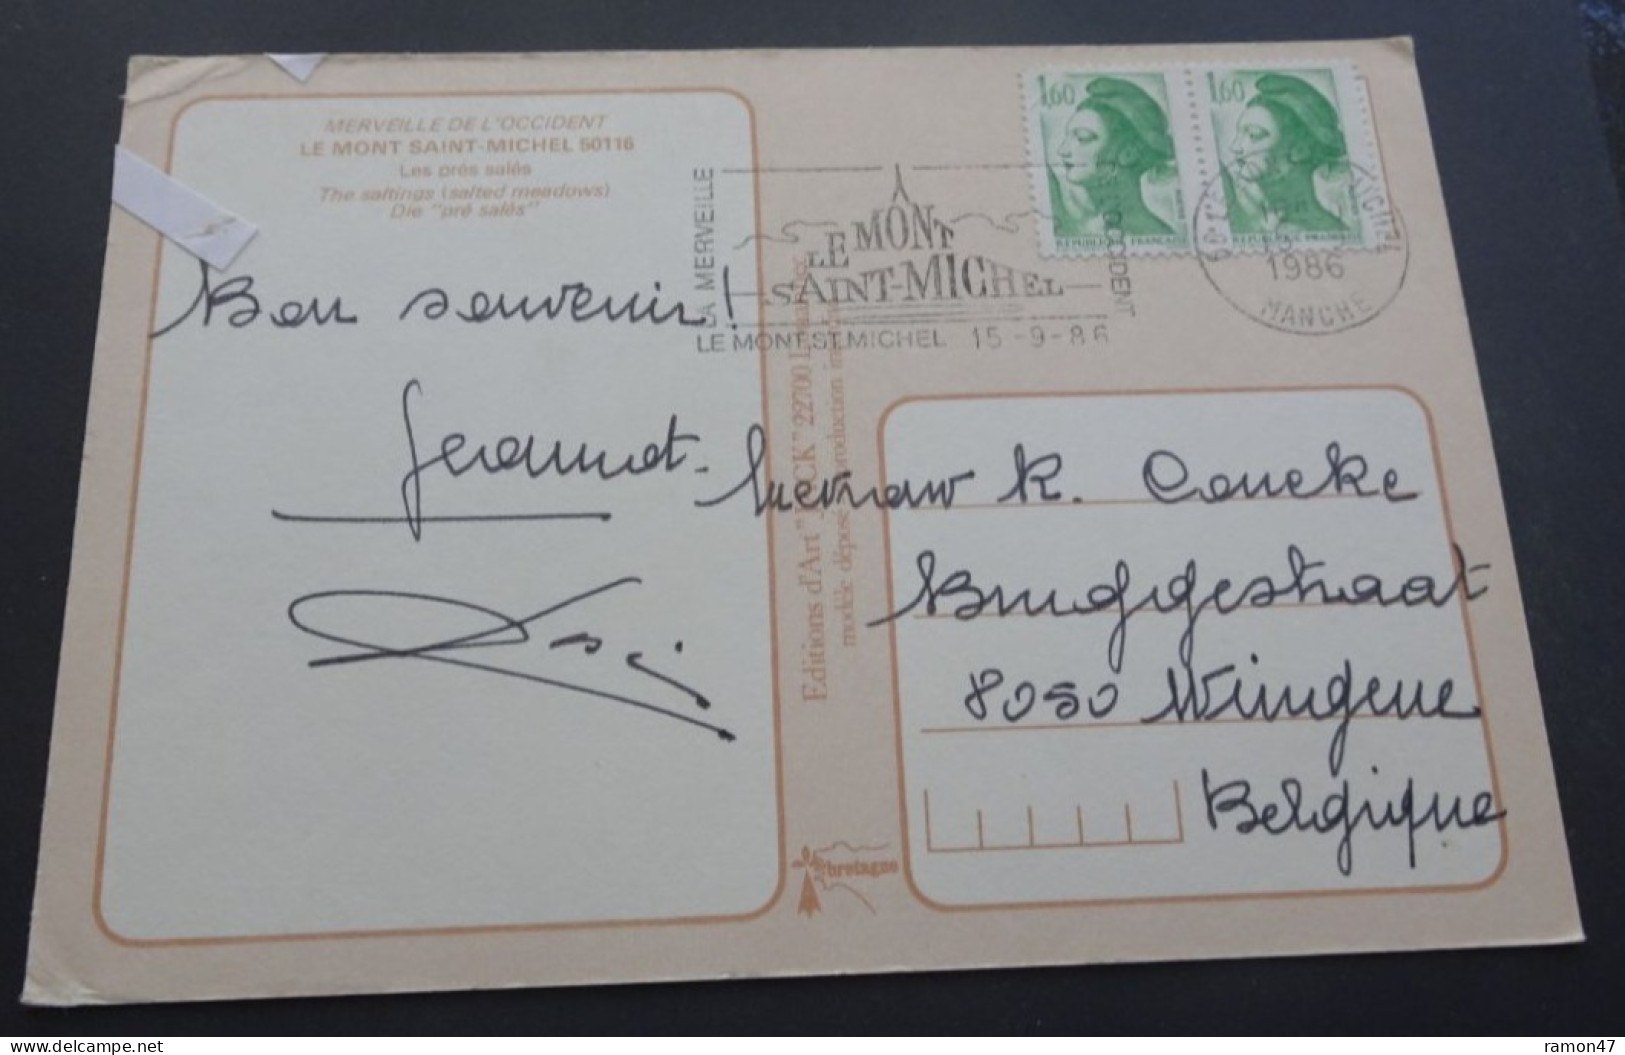 MERVEILLE DE L'OCCIDENT
LE MONT SAINT-MICHEL 50116
Les prés salés
The saltings (salted meadows)
Die "pré salés"
Bon souvenir!
Jeannot
1,60
REPUBLIQUE FRANÇAISE
1,60
REPUBLIQUE FRANÇAISE
LA MERVEILLE
LE MONT
SAINT-MICHEL
LE MONT ST MICHEL 15-9-86
1986
MANCHE
Editions d'Art "JACK" 22700
modèle déposé reproduction
K. Coucke
Bruggestraat
8050 Wingene
Belgique
bretagne
delcampe.net
ramon47